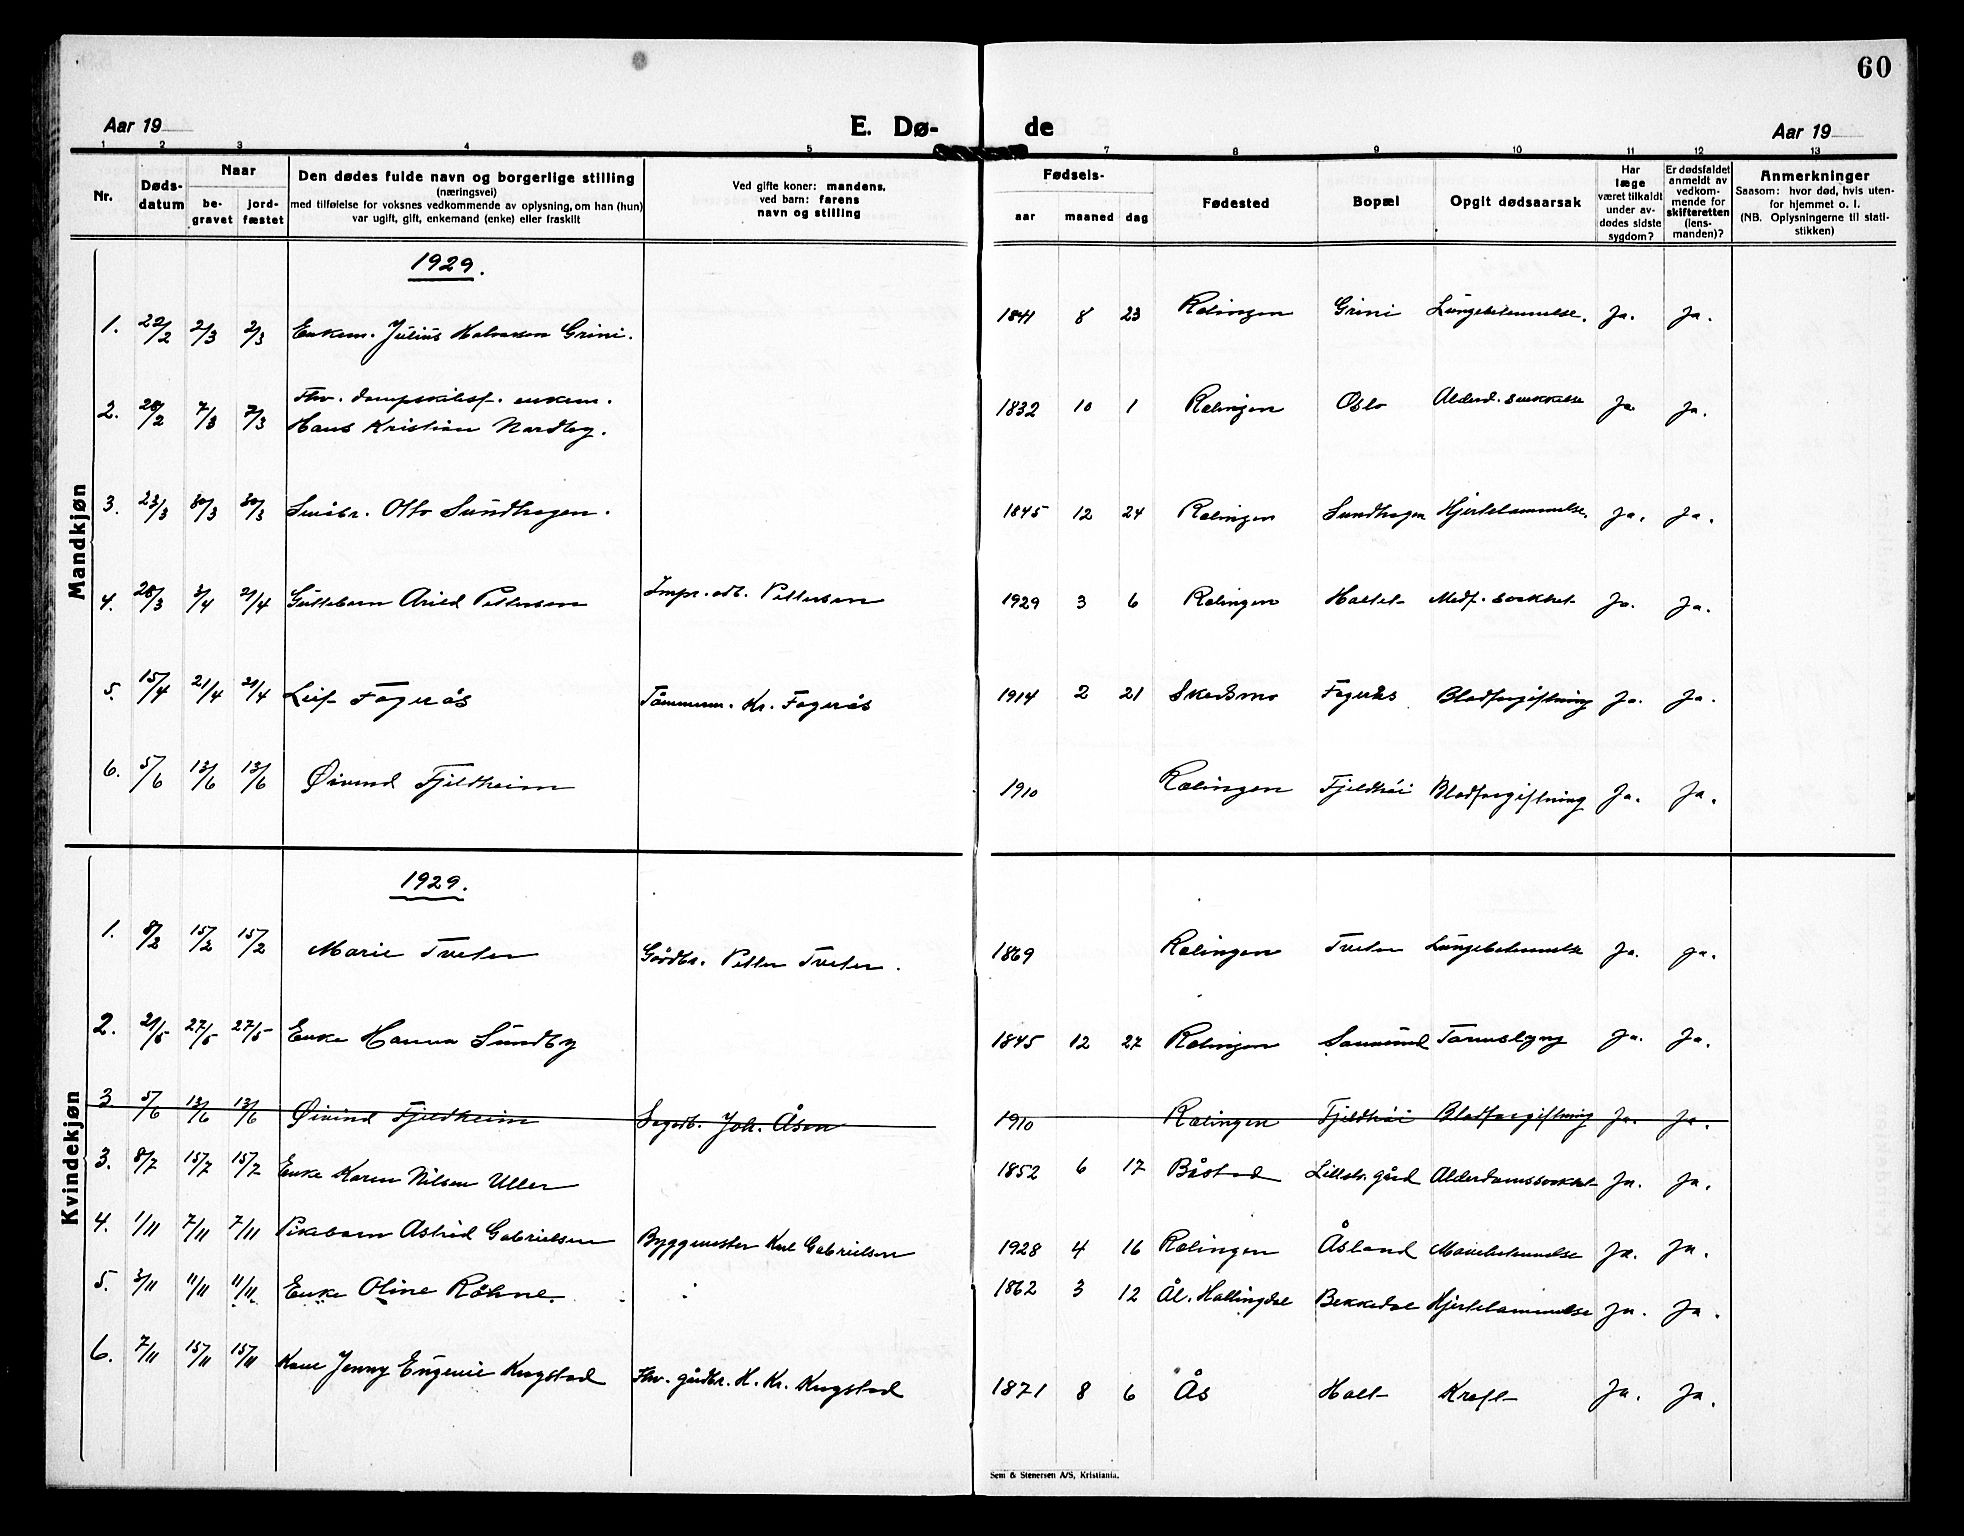 60
Aar 19
E. Dø-
de
Aar 19
1 2 3 4 5 7 8 9 10 11 12 13
Nr.
Døds-
datum
Naar
be-
gravet
jord-
fæstet
Den dødes fulde navn og borgerlige stilling
(næringsvei)
med tilføielse for voksnes vedkommende av oplysning, om han (hun)
var ugift, gift, enkemand (enke) eller fraskilt
Ved gifte koner: mandens,
ved barn: farens
navn og stilling
Fødsels-
aar maaned dag
Fødested
Bopæl
Opgit dødsaarsak
Har
læge
været tilkaldt
under av-
dødes sidste
sygdom?
Er dødsfaldet
anmeldt av
vedkom-
mende for
skifteretten
(lens-
manden)?
Anmerkninger
Saasom: hvor død, hvis uten-
for hjemmet o. l.
(NB. Oplysningerne til stati-
stikken)
Mandkjøn
1929.
1. 22/2 2/3 2/3 Enkem. Julius Halvorsen Grini. 1841 8 23 Rælingen Grini Lungebetennelse. Ja. Ja.
2. 28/2 7/3 7/3 Fhv. dampskibsf. enkem.
Hans Kristian Nordby. 1832 10 1 Rælingen Oslo Alderd. svækkelse Ja. Ja.
3. 23/3 30/3 30/3 Småbr. Otto Sundhagen. 1845 12 24 Rælingen Sundhagen Hjertelammelse. Ja. Ja.
4. 28/3 3/4 21/4 Guttebarn Arild Pettersen Impr. adb. Pettersen 1929 3 6 Rælingen Holtet Medf. svakhet Ja. Ja.
5. 15/4 21/4 21/4 Leif Fagerås Tømmerm. Kr. Fagerås 1914 2 21 Skedsmo Fagerås Blodforgiftning Ja. Ja.
6. 5/6 13/6 13/6 Øivind Fjeldheim 1910 Rælingen Fjeldhøi Blodforgiftning Ja. Ja.
Kvindekjøn
1929.
1. 8/2 15/2 15/2 Marie Tveter Gårdbr. Petter Tveter. 1869 Rælingen Tveter Lungebetennelse Ja. Ja.
2. 21/5 27/5 27/5 Enke Hanna Sundby 1845 12 27 Rælingen Tarmslyng Ja. Ja.
3 5/6 13/6 13/6 Øivind Fjeldheim Joh. Åsen 1910 Rælingen Fjeldhøi Blodforgiftning Ja. Ja.
3. 8/7 15/7 15/7 Enke Karen Nilsen Uller 1852 6 17 Båstad Lillestr. gård Alderdomssvakhet Ja. Ja.
4. 1/11 7/11 7/11 Pikebarn Astrid Gabrielsen Byggmester Karl Gabrielsen 1928 4 16 Rælingen Åsland Mavebetennelse Ja. Ja.
5. 3/11 11/11 11/11 Enke Oline Råhne. 1862 3 12 Ål. Hallingdal Bekkedal Hjertelammelse Ja. Ja.
6. 7/11 15/11 15/11 Kone Jenny Eugenie Krogstad Fhv. gårdbr. H. Kr. Krogstad 1871 8 6 Ås Holt Kreft Ja. Ja.
Sem & Stenersen A/S, Kristiania.